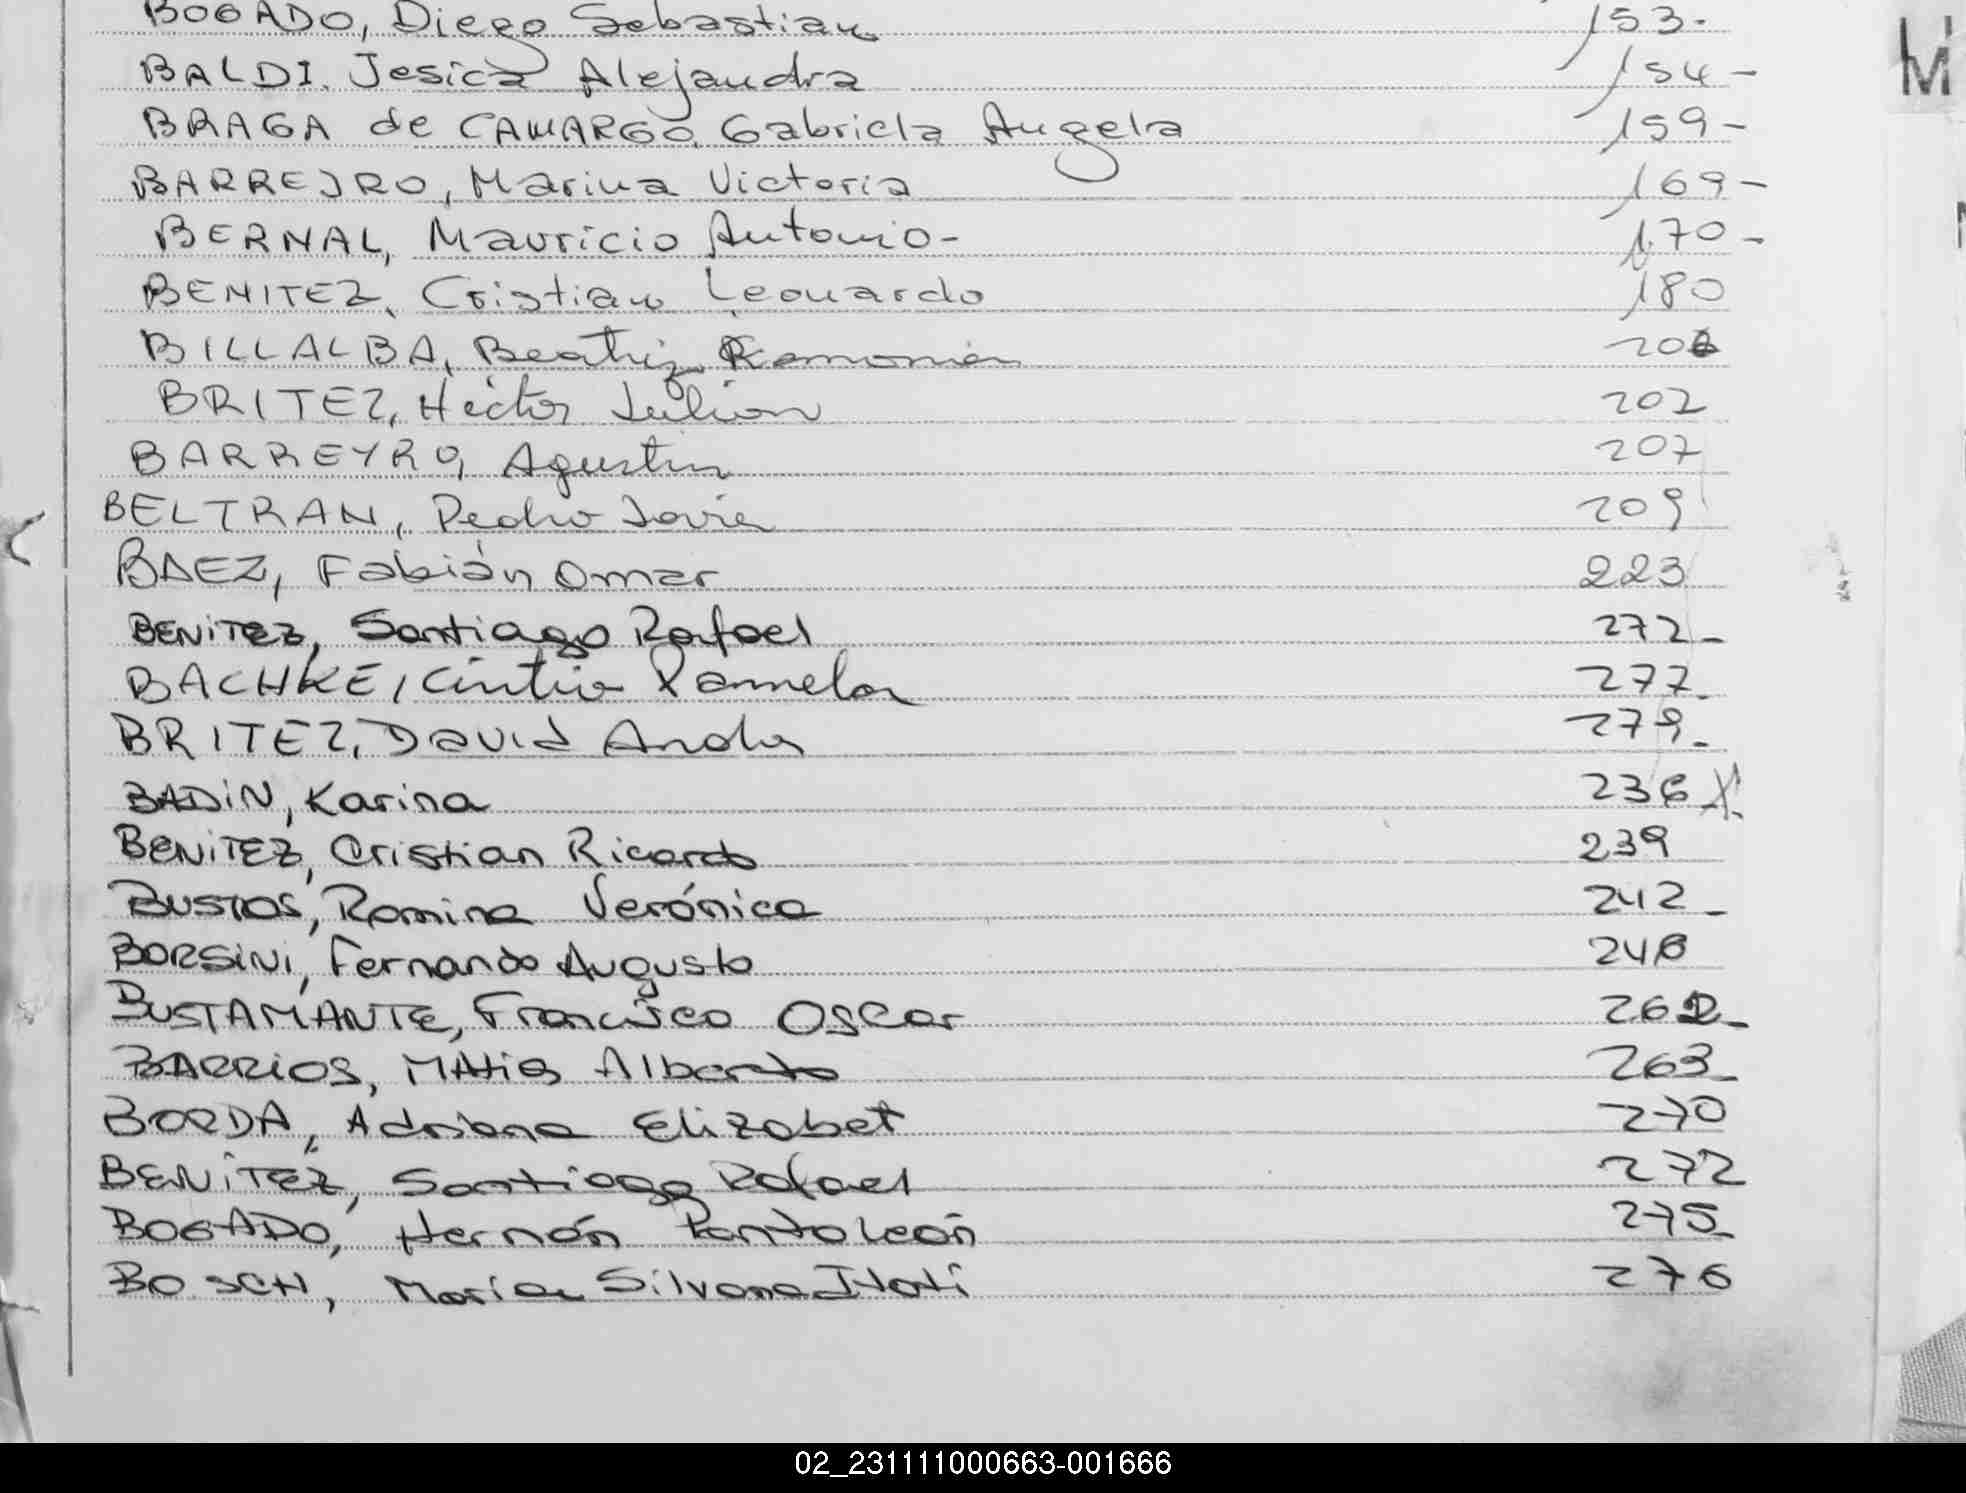 BOGADO, Diego Sebastian 153-
BALDI. Jesica Alejandra 154-
BRAGA de CAMARGO, Gabriela Angela 159-
BARREIRO, Marina Victoria 169-
BERNAL, Mauricio Antonio- 170-
BENITEZ, Cristian Leonardo 180
BILLALBA, Beatriz Ramona
BRITEZ, Héctor Julian 202
BARREYRO, Agustin 207
BELTRAN, Pedro Javier 209
BAEZ, Fabián Omar 223
BENITEZ, Santiago Rafael 272-
BACHKE, Cintia Pamela 277-
BRITEZ, David 279-
BADIN, Karina 236 X
BENITEZ, Cristian Ricardo 239
BUSTOS, Romina Verónica 242-
BORSINI, Fernando Augusto 246
BUSTAMANTE, Francisco Oscar 262-
BARRIOS, Matias Alberto 263-
BORDA, Adriana Elizabet 270
BENITEZ, Santiago Rafael 272
BOGADO, Hernán Pantaleón 275-
BOSCH, Maria Silvana Itati 276
M
02_231111000663-001666